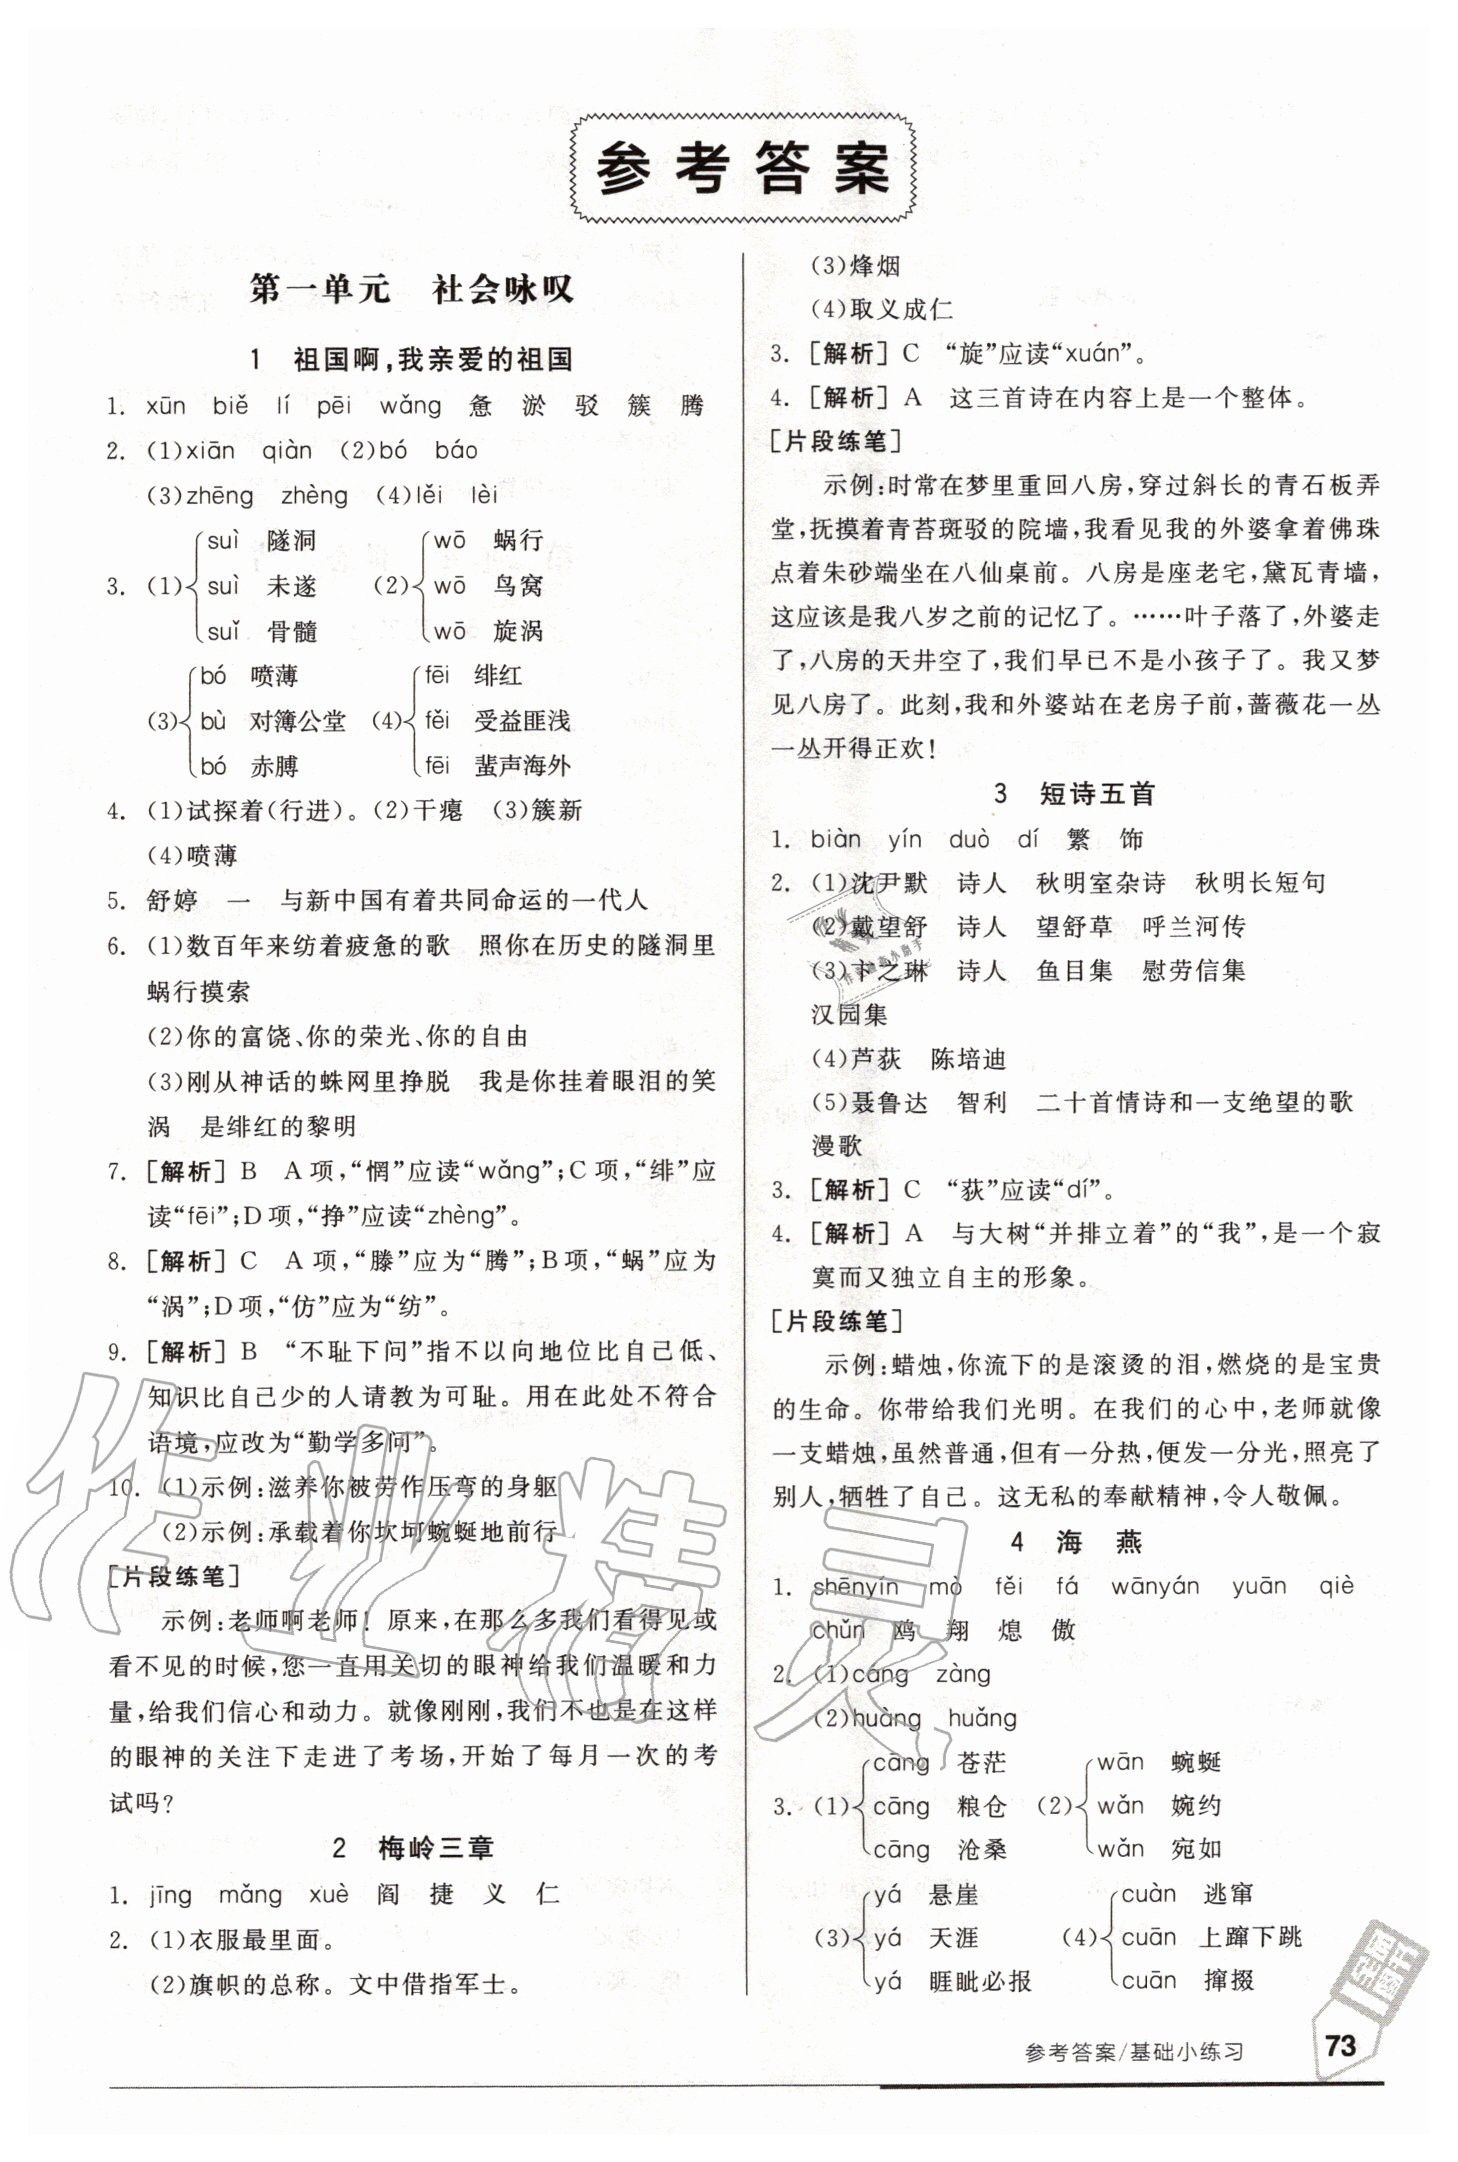 参考答案
第一单元 社会咏叹
1 祖国啊,我亲爱的祖国
1. xūn biě lí pēi wǎng 惫 淤 驳 簇 腾
2. (1)xiān qiàn (2)bó báo
(3)zhēng zhèng (4)lěi lèi
3. (1) suì 隧洞 suì 未遂 suǐ 骨髓 (2) wō 蜗行 wō 鸟窝 wō 旋涡
(3) bó 喷薄 bù 对簿公堂 bó 赤膊 (4) fēi 绯红 fěi 受益匪浅 fēi 蜚声海外
4. (1)试探着(行进)。(2)干瘪 (3)簇新
(4)喷薄
5. 舒婷 一 与新中国有着共同命运的一代人
6. (1)数百年来纺着疲惫的歌 照你在历史的隧洞里
蜗行摸索
(2)你的富饶、你的荣光、你的自由
(3)刚从神话的蛛网里挣脱 我是你挂着眼泪的笑
涡 是绯红的黎明
7. [解析] B A项,“惘”应读“wǎng”;C项,“绯”应
读“fēi”;D项,“挣”应读“zhèng”。
8. [解析] C A项,“滕”应为“腾”;B项,“蜗”应为
“涡”;D项,“仿”应为“纺”。
9. [解析] B “不耻下问”指不以向地位比自己低、
知识比自己少的人请教为可耻。用在此处不符合
语境,应改为“勤学多问”。
10. (1)示例:滋养你被劳作压弯的身躯
(2)示例:承载着你坎坷蜿蜒地前行
[片段练笔]
示例:老师啊老师!原来,在那么多我们看得见或
看不见的时候,您一直用关切的眼神给我们温暖和力
量,给我们信心和动力。就像刚刚,我们不也是在这样
的眼神的关注下走进了考场,开始了每月一次的考
试吗?
2 梅岭三章
1. jīng mǎng xuè 阎 捷 义 仁
2. (1)衣服最里面。
(2)旗帜的总称。文中借指军士。
(3)烽烟
(4)取义成仁
3. [解析] C “旋”应读“xuán”。
4. [解析] A 这三首诗在内容上是一个整体。
[片段练笔]
示例:时常在梦里重回八房,穿过斜长的青石板弄
堂,抚摸着青苔斑驳的院墙,我看见我的外婆拿着佛珠
点着朱砂端坐在八仙桌前。八房是座老宅,黛瓦青墙,
这应该是我八岁之前的记忆了。……叶子落了,外婆走
了,八房的天井空了,我们早已不是小孩子了。我又梦
见八房了。此刻,我和外婆站在老房子前,蔷薇花一丛
一丛开得正欢!
3 短诗五首
1. biàn yín duò dí 繁 饰
2. (1)沈尹默 诗人 秋明室杂诗 秋明长短句
(2)戴望舒 诗人 望舒草 呼兰河传
(3)卞之琳 诗人 鱼目集 慰劳信集
汉园集
(4)芦荻 陈培迪
(5)聂鲁达 智利 二十首情诗和一支绝望的歌
漫歌
3. [解析] C “荻”应读“dí”。
4. [解析] A 与大树“并排立着”的“我”,是一个寂
寞而又独立自主的形象。
[片段练笔]
示例:蜡烛,你流下的是滚烫的泪,燃烧的是宝贵
的生命。你带给我们光明。在我们的心中,老师就像
一支蜡烛,虽然普通,但有一分热,便发一分光,照亮了
别人,牺牲了自己。这无私的奉献精神,令人敬佩。
4 海 燕
1. shēnyín mò fěi fá wānyán yuān qiè
chǔn 鸥 翔 熄 傲
2. (1)cáng zàng
(2)huàng huǎng
3. (1) cāng 苍茫 cāng 粮仓 cāng 沧桑 (2) wān 蜿蜒 wǎn 婉约 wǎn 宛如
(3) yá 悬崖 yá 天涯 yá 睚眦必报 (4) cuàn 逃窜 cuān 上蹿下跳 cuān 撺掇
参考答案/基础小练习
73
作业精灵